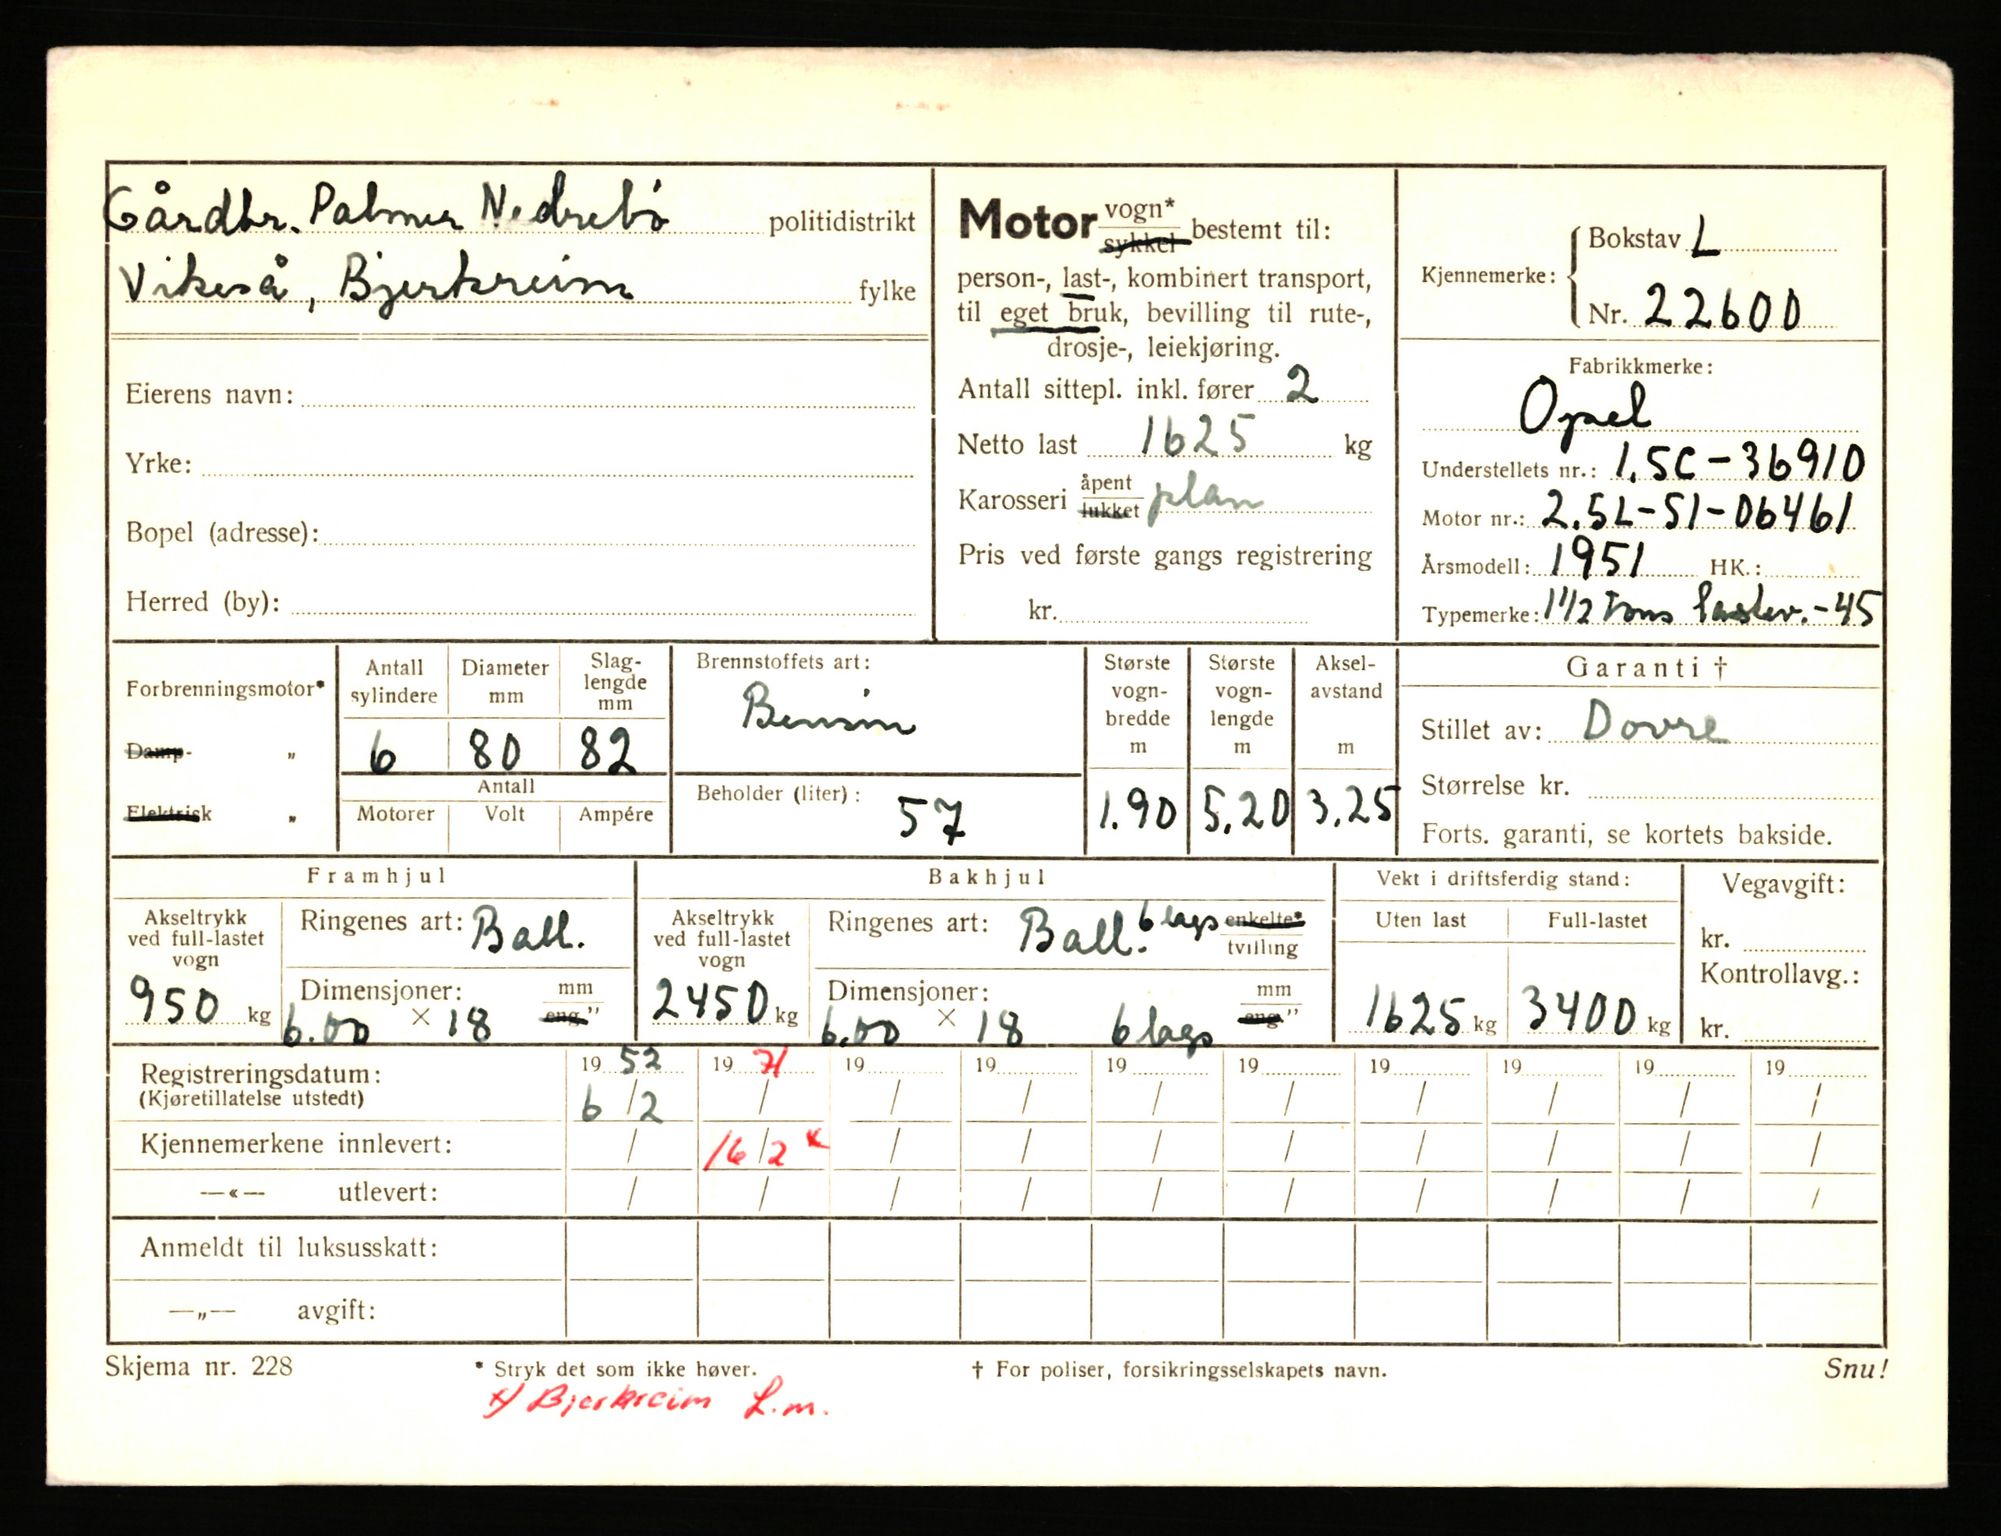 Gårdbr. Palmer Nedrebø politidistrikt
Vikeså, Bjerkreim fylke
Eierens navn:
Yrke:
Bopel (adresse):
Herred (by):
Motor vogn* sykkel bestemt til:
person-, last-, kombinert transport,
til eget bruk, bevilling til rute-,
drosje-, leiekjøring.
Antall sittepl. inkl. fører 2
Netto last 1625 kg
Karosseri åpent lukket plan
Pris ved første gangs registrering
kr.
Kjennemerke: Bokstav L
Nr. 22600
Fabrikkmerke:
Opel
Understellets nr.: 1,5C-36910
Motor nr.: 2.5L-51-06461
Årsmodell: 1951 HK.:
Typemerke: 1 1/2 tons lastev.-45
Forbrenningsmotor*
Damp- „
Elektrisk „
Antall sylindere
Diameter mm
Slag-lengde mm
6 80 82
Antall
Motorer Volt Ampére
Brennstoffets art:
Bensin
Beholder (liter): 57
Største vogn-bredde m
Største vogn-lengde m
Aksel-avstand m
1.90 5,20 3,25
Garanti †
Stillet av: Dovre
Størrelse kr.
Forts. garanti, se kortets bakside.
Framhjul
Akseltrykk ved full-lastet vogn
950 kg
Ringenes art: Ball.
Dimensjoner: mm eng."
6.00 × 18
Bakhjul
Akseltrykk ved full-lastet vogn
2450 kg
Ringenes art: Ball. 6 lags enkelte* tvilling
Dimensjoner: mm eng."
6.00 × 18 6 lags
Vekt i driftsferdig stand:
Uten last Full-lastet
1625 kg 3400 kg
Vegavgift:
kr.
Kontrollavg.:
kr.
Registreringsdatum: 19 52 19 71 19 19 19 19 19 19 19 19
(Kjøretillatelse utstedt) 6/2 / / / / / / / / /
Kjennemerkene innlevert: / 16/2 x / / / / / / / /
—«— utlevert: / / / / / / / / / /
Anmeldt til luksusskatt:
—„— avgift:
Skjema nr. 228 * Stryk det som ikke høver. † For poliser, forsikringsselskapets navn. Snu!
x) Bjerkreim L.m.